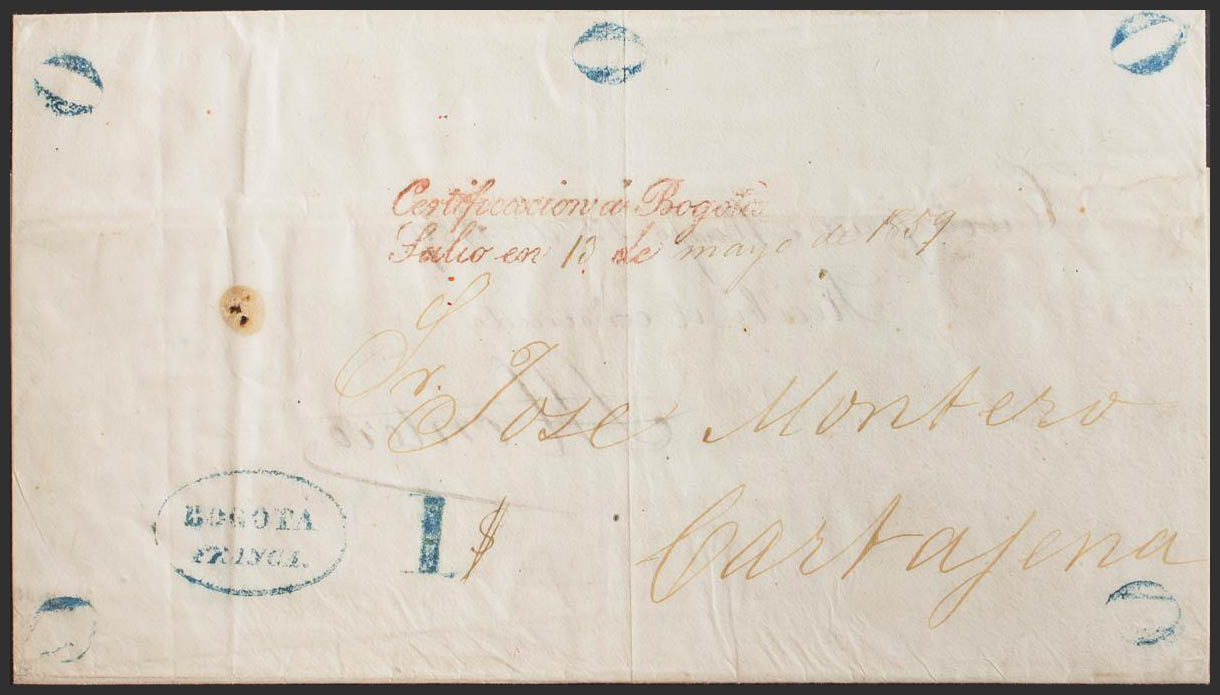 Certificacion de Bogotá
Salio en 13 de mayo de 1859.
Sr. José Montero
BOGOTA
FRANCA.
1 $
Cartajena